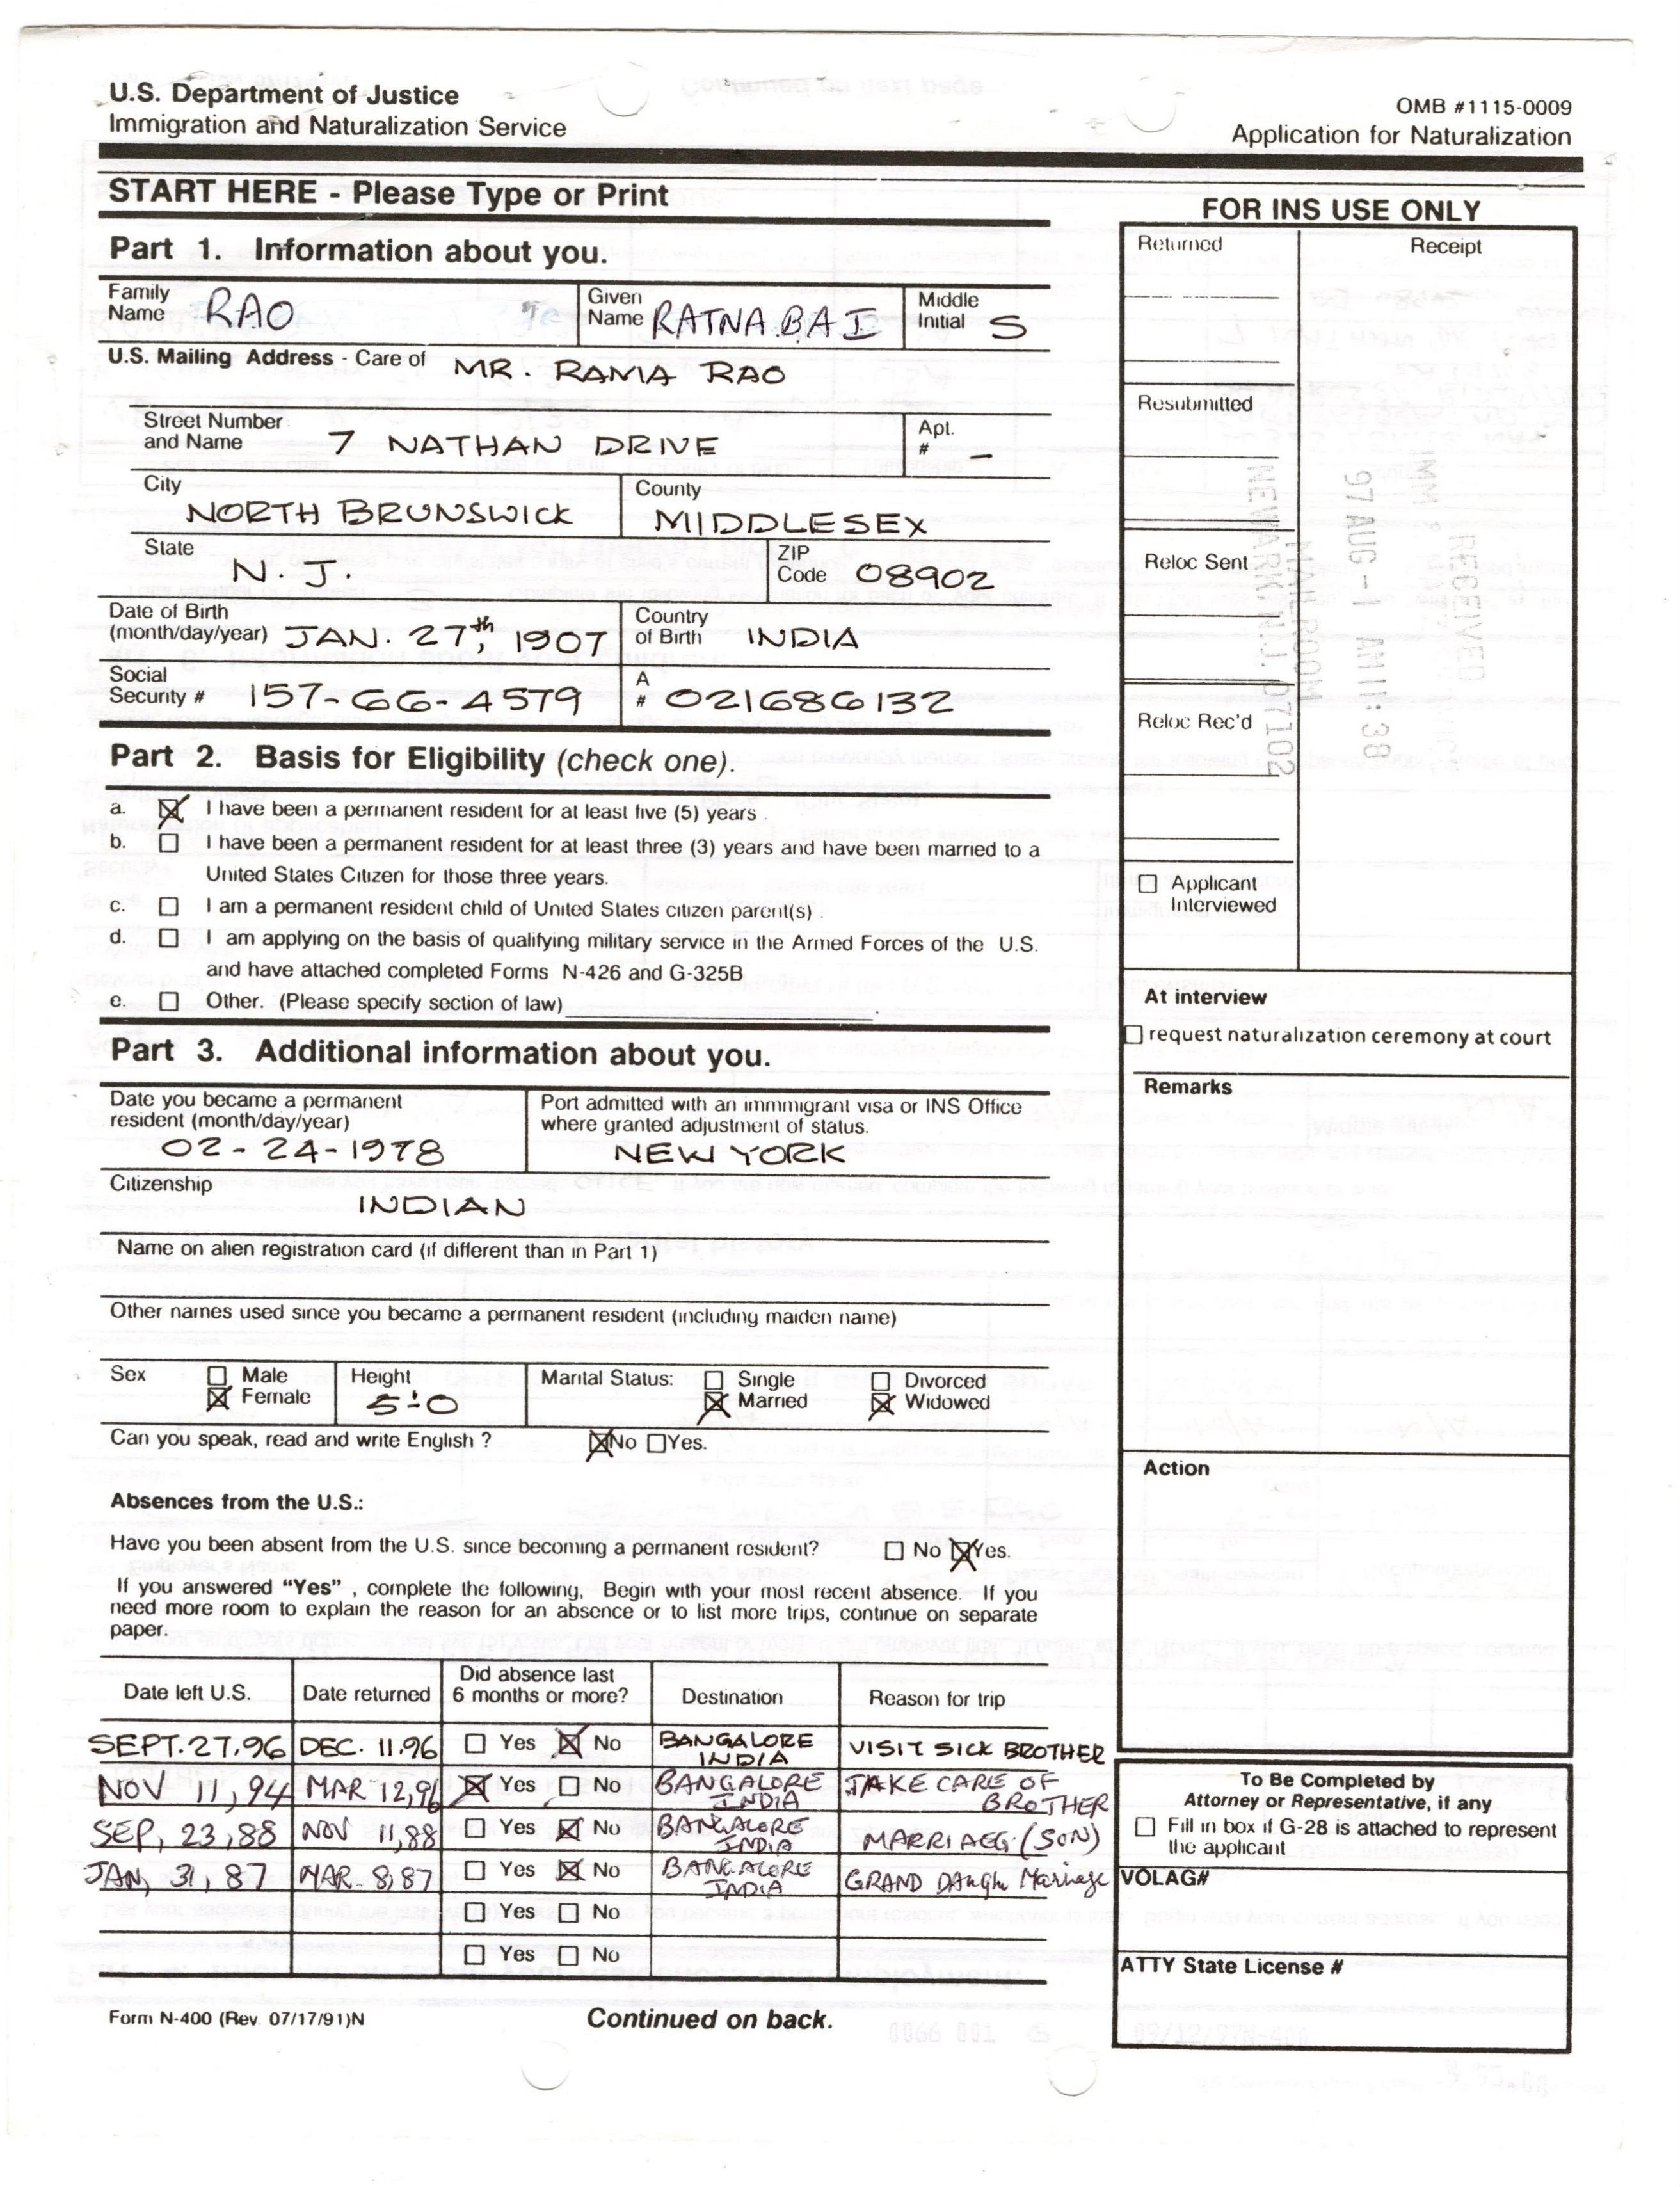 U.S. Department of Justice
Immigration and Naturalization Service
OMB #1115-0009
Application for Naturalization
START HERE - Please Type or Print
Part 1. Information about you.
Family Name RAO
Given Name RATNA BAI
Middle Initial S
U.S. Mailing Address - Care of MR. RAMA RAO
Street Number and Name 7 NATHAN DRIVE
Apt. # -
City NORTH BRUNSWICK
County MIDDLESEX
State N. J.
ZIP Code 08902
Date of Birth (month/day/year) JAN. 27th, 1907
Country of Birth INDIA
Social Security # 157-66-4579
A # 021686132
Part 2. Basis for Eligibility (check one).
a. ☒ I have been a permanent resident for at least five (5) years .
b. ☐ I have been a permanent resident for at least three (3) years and have been married to a
United States Citizen for those three years.
c. ☐ I am a permanent resident child of United States citizen parent(s) .
d. ☐ I am applying on the basis of qualifying military service in the Armed Forces of the U.S.
and have attached completed Forms N-426 and G-325B
e. ☐ Other. (Please specify section of law)
Part 3. Additional information about you.
Date you became a permanent resident (month/day/year)
02-24-1978
Port admitted with an immigrant visa or INS Office
where granted adjustment of status.
NEW YORK
Citizenship
INDIAN
Name on alien registration card (if different than in Part 1)
Other names used since you became a permanent resident (including maiden name)
Sex ☐ Male ☒ Female
Height 5'-0
Marital Status: ☐ Single ☒ Married ☐ Divorced ☒ Widowed
Can you speak, read and write English ? ☒No ☐Yes.
Absences from the U.S.:
Have you been absent from the U.S. since becoming a permanent resident? ☐ No ☒Yes.
If you answered "Yes" , complete the following, Begin with your most recent absence. If you
need more room to explain the reason for an absence or to list more trips, continue on separate
paper.
Date left U.S. Date returned Did absence last 6 months or more? Destination Reason for trip
SEPT.27.96 DEC. 11.96 ☐ Yes ☒ No BANGALORE INDIA VISIT SICK BROTHER
NOV 11,94 MAR 12,96 ☒ Yes ☐ No BANGALORE INDIA TAKE CARE OF BROTHER
SEP, 23,88 NOV 11,88 ☐ Yes ☒ No BANGALORE INDIA MARRIAEG (SON)
JAN, 31,87 MAR 8,87 ☐ Yes ☒ No BANGALORE INDIA GRAND DAugh Marriage
☐ Yes ☐ No
☐ Yes ☐ No
Form N-400 (Rev. 07/17/91)N
Continued on back.
FOR INS USE ONLY
Returned
Receipt
Resubmitted
Reloc Sent
Reloc Rec'd
RECEIVED
97 AUG -1 AM 11:38
MAIL ROOM
NEWARK N.J. 07102
☐ Applicant Interviewed
At interview
☐ request naturalization ceremony at court
Remarks
Action
To Be Completed by
Attorney or Representative, if any
☐ Fill in box if G-28 is attached to represent
the applicant
VOLAG#
ATTY State License #